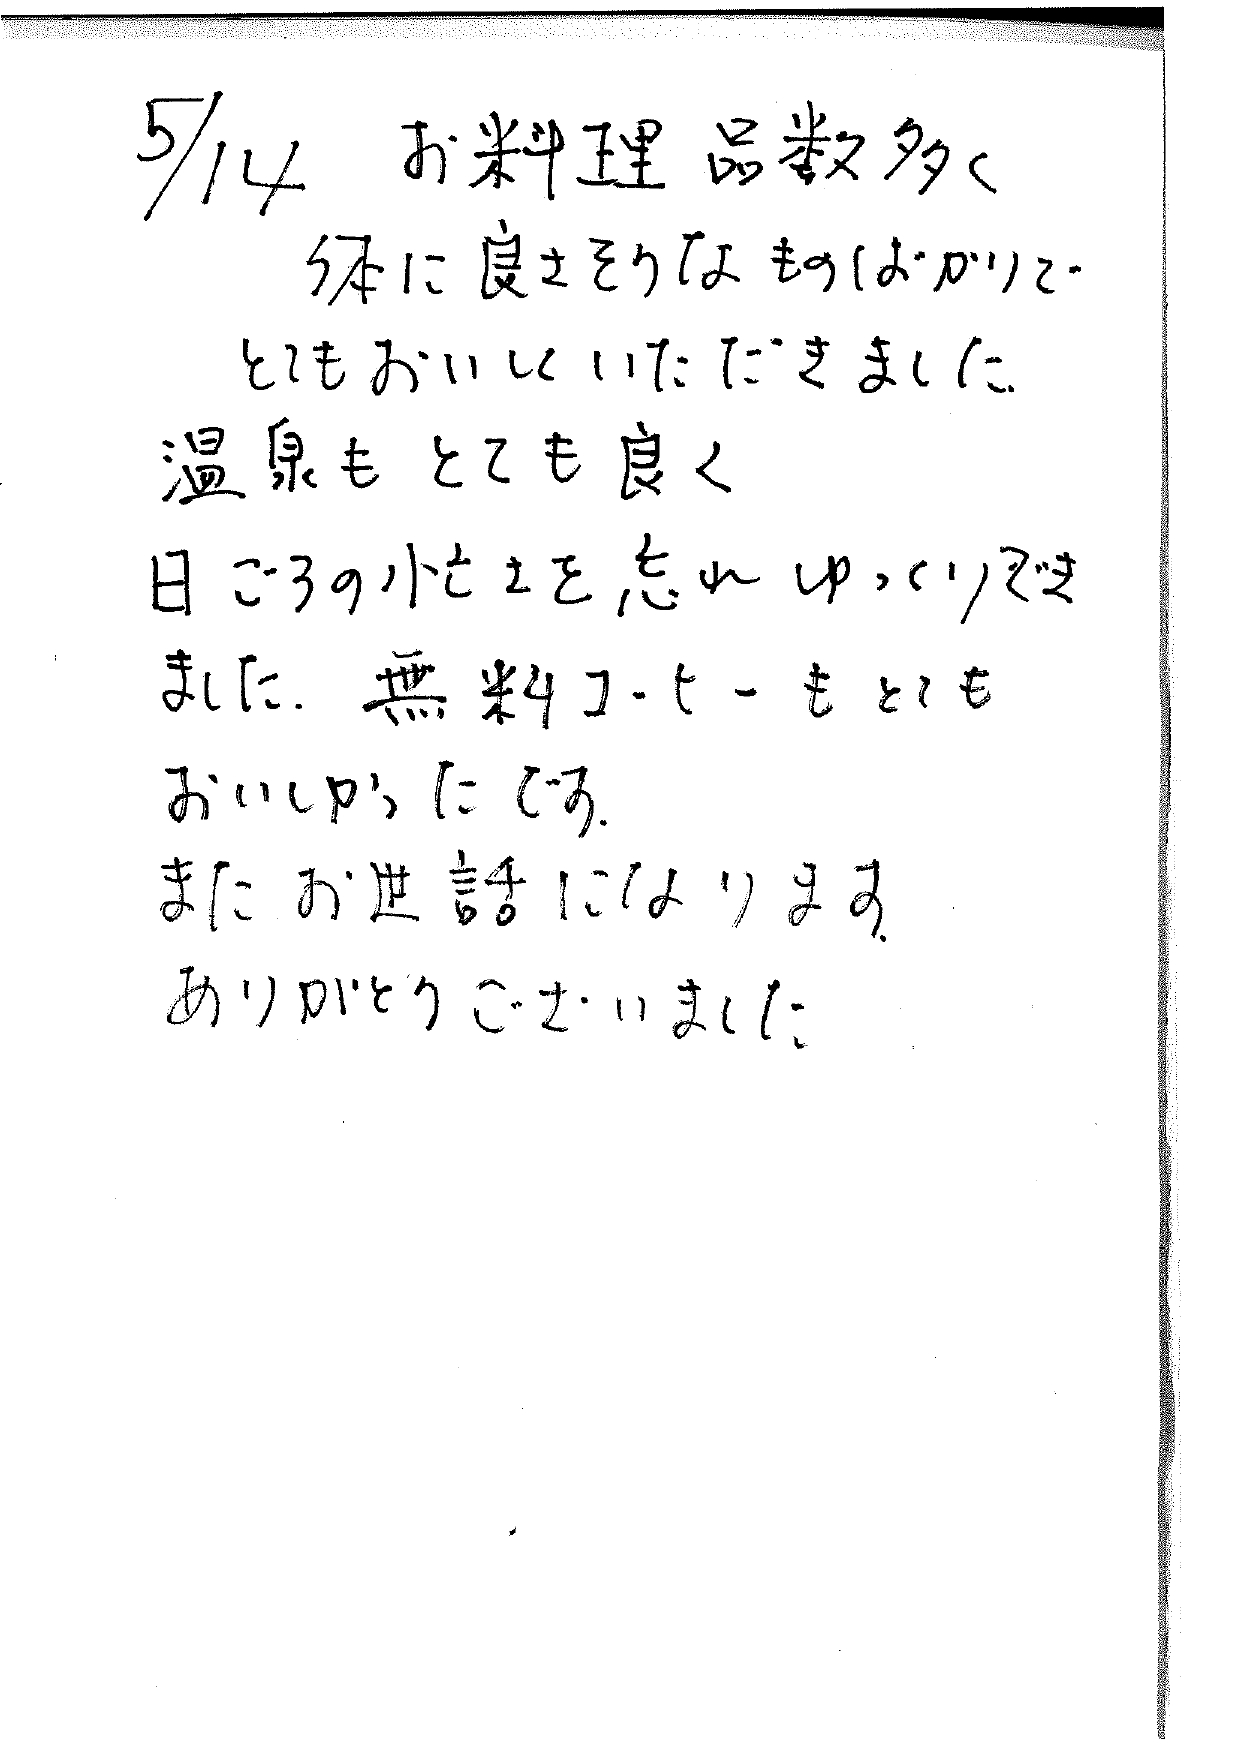 5/14 お料理 品数多く
体に良さそうなものばかりで
とてもおいしくいただきました.
温泉もとても良く
日ごろの忙さを忘れゆっくりでき
ました. 無料コーヒーもとても
おいしかったです.
またお世話になります.
ありがとうございました